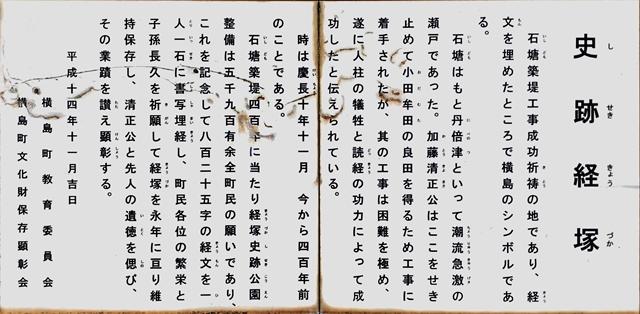 史跡経塚
石塘築堤工事成功祈祷の地であり、経
文を埋めたところで横島のシンボルであ
る。
石塘はもと丹倍津といって潮流急激の
瀬戸であった。加藤清正公はここをせき
止めて小田牟田の良田を得るため工事に
着手されたが、其の工事は困難を極め、
遂に人柱の犠牲と読経の功力によって成
功したと伝えられている。
時は慶長十年十一月 今から四百年前
のことである。
石塘築堤四百年に当たり経塚史跡公園
整備は五千九百有余全町民の願いであり、
これを記念して八百二十五字の経文を一
人一石に書写埋経し、町民各位の繁栄と
子孫長久を祈願して経塚を永年に亘り維
持保存し、清正公と先人の遺徳を偲び、
その業蹟を讃え顕彰する。
平成十四年十一月吉日
横島町教育委員会
横島町文化財保存顕彰会